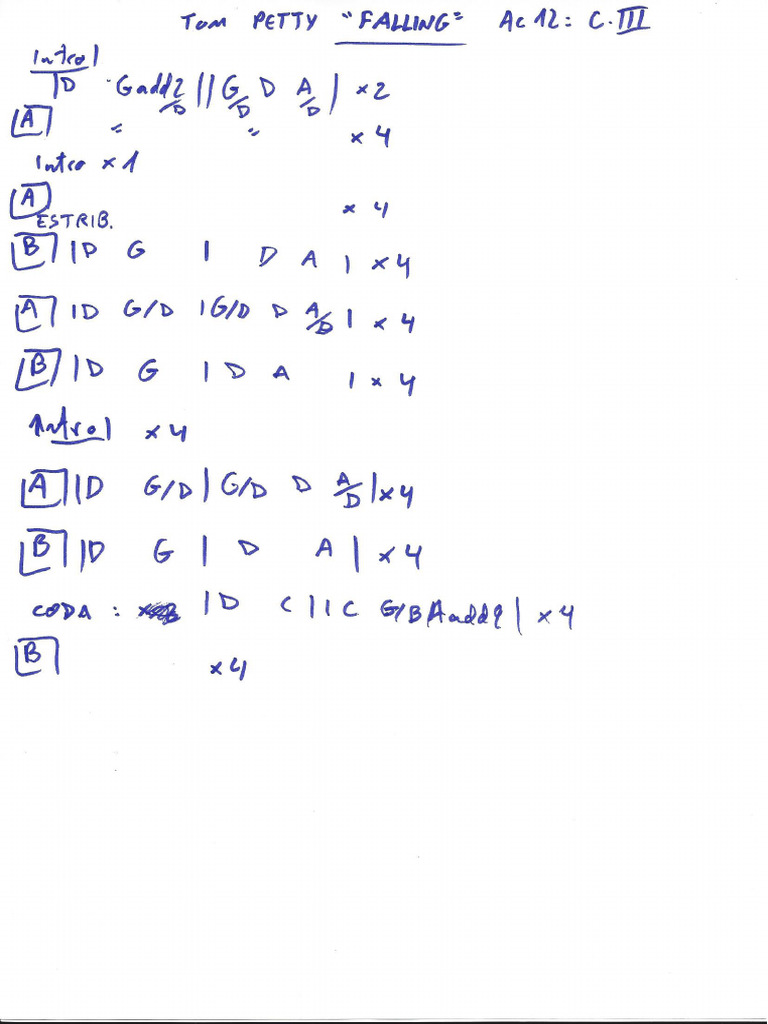 Tom PETTY "FALLING" Ac 12: C.III
Intro
|D Gadd2/D || G/D D A/D | x2
A " " x 4
Intro x 1
A x 4
ESTRIB.
B |D G | D A | x4
A |D G/D | G/D D A/D | x 4
B |D G | D A | x 4
Intro x4
A |D G/D | G/D D A/D | x4
B |D G | D A | x4
CODA : |D C | | C G/B Aadd9 | x 4
B x4